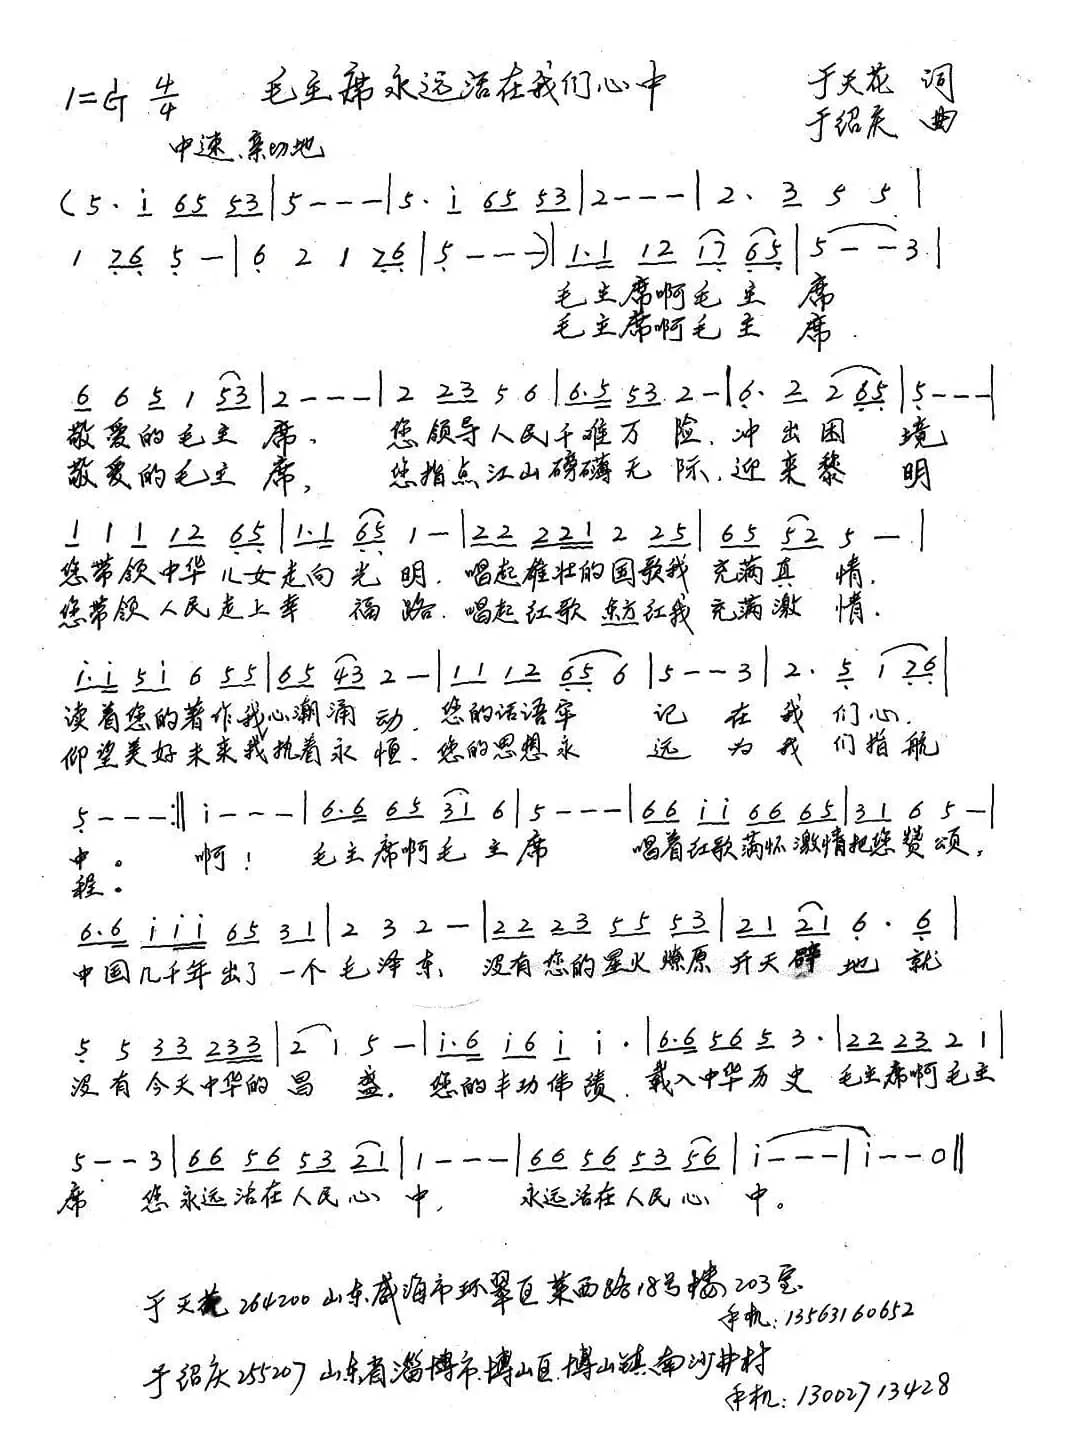 1=G 4/4 毛主席永远活在我们心中 于天花 词
中速、亲切地 于绍庆 曲
(5· i 65 53|5---|5· i 65 53|2---|2· 3 5 5|
1 26 5-|6 2 1 26|5---)|1·1 12 17 65|5--3|
毛主席啊毛主席
毛主席啊毛主席
6 6 5 1 53|2---|2 23 5 6|6·5 53 2-|6· 2 2 65|5---|
敬爱的毛主席、您领导人民千难万险、冲出困境
敬爱的毛主席，您指点江山磅礴无际，迎来黎明
1 1 1 12 65|1·1 65 1-|22 221 2 25|65 52 5-|
您带领中华儿女走向光明．唱起雄壮的国歌我充满真情．
您带领人民走上幸福路．唱起红歌东方红我充满激情．
i·i 5i 6 55|65 43 2-|11 12 65 6|5--3|2· 5 1 26|
读着您的著作我心潮涌动．您的话语牢记在我们心．
仰望美好未来我执着永恒．您的思想永远为我们指航
5---:‖ i---|6·6 65 31 6|5---|66 ii 66 65|31 6 5-|
中。啊！毛主席啊毛主席 唱着红歌满怀激情把您赞颂，
程。
6·6 iii 65 31|2 3 2-|22 23 55 53|21 21 6· 6|
中国几千年出了一个毛泽东、没有您的星火燎原开天辟地就
5 5 33 233|2 1 5-|i·6 i6 i i·|6·6 56 5 3·|22 23 2 1|
没有今天中华的昌盛．您的丰功伟绩．载入中华历史 毛主席啊毛主
5--3|66 56 53 21|1---|66 56 53 56|i---|i--0‖
席 您永远活在人民心中，永远活在人民心中。
于天花 264200 山东威海市环翠区莱西路18号楼203室
手机：13563160652
于绍庆 255207 山东省淄博市博山区博山镇南沙井村
手机：13002713428